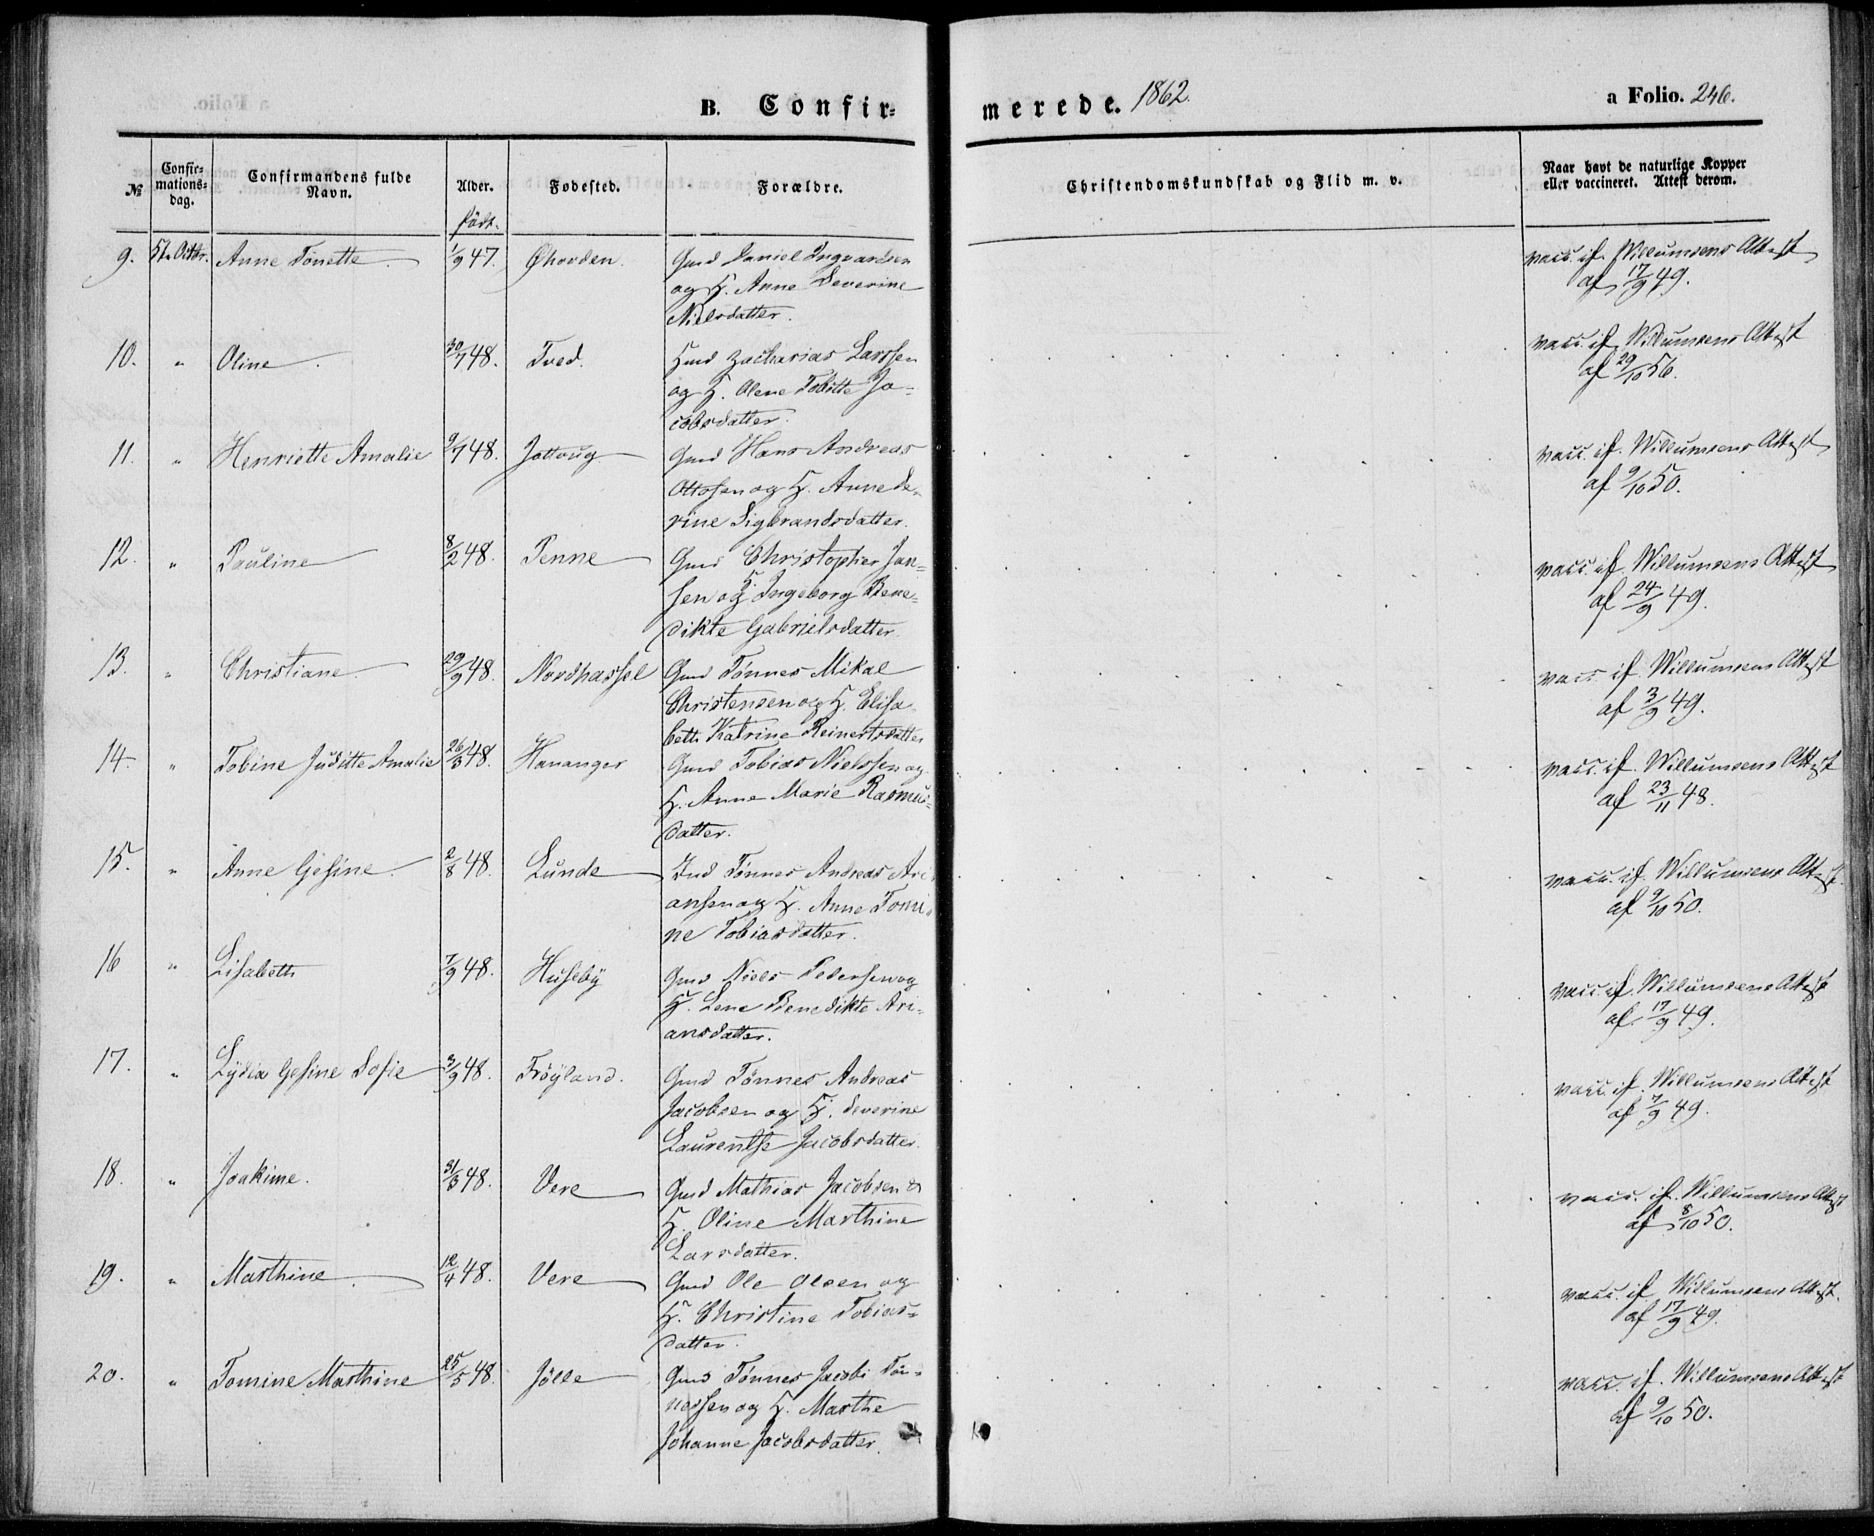 B. Confir-
merede. 1862.
a Folio. 246.
№
Confir-
mations-
dag.
Confirmandens fulde
Navn.
Alder.
Fødested.
Forældre.
Christendomskundskab og Flid m. v.
Naar havt de naturlige Kopper
eller vaccineret. Attest derom.
født.
9. 5te Octbr. Anne Tonette 1/9 47. Ghovden. Gmd Daniel Ingvardsen
og H. Anne Severine
Nielsdatter.
vacc. if. Willumsens Attest
af 17/9 49.
10. " Oline 30/7 48. Tved. Hmd Zacharias Larssen
og H. Olene Tobitte Ja-
cobsdatter.
vacc. if. Willumsens Attest
af 29/10 56.
11. " Henriette Amalie 9/7 48. Jottoug Gmd Hans Andreas
Ottosen og H. Anne Se-
rine Sigbrandsdatter.
vacc. if. Willumsens Attest
af 9/10 50.
12. " Pauline 8/2 48. Penne Gmd Christopher Jan-
sen og H. Ingeborg Bene-
dikte Gabrielsdatter.
vacc. if. Willumsens Attest
af 24/9 49.
13. " Christiane 29/9 48. Nordhassel Gmd Tønnes Mikal
Christensen og H. Elisa-
beth Katrine Reinertsdatter
vacc. if. Willumsens Attest
af 3/9 49.
14. " Tobine Juditte Amalie 26/3 48. Hananger Gmd Tobias Nielssen og
H. Anne Marie Rasmus-
datter.
vacc. if. Willumsens Attest
af 23/11 48.
15. " Anne Gesine 2/8 48. Lunde Ind Tønnes Andreas Ari-
ansen og H. Anne Tomi-
ne Tobiasdatter.
vacc. if. Willumsens Attest
af 9/10 50.
16 " Lisabeth 7/9 48. Huseby Gmd Niels Pedersen og
H. Lene Benedikte Ari-
ansdatter.
vacc. if. Willumsens Attest
af 17/9 49.
17. " Lydia Gesine Sofie 3/9 48. Frøyland. Gmd Tønnes Andreas
Jacobsen og H. Severine
Laurentse Jacobsdatter.
vacc. if. Willumsens Attest
af 7/9 49.
18. " Joakime. 31/3 48. Vere Gmd Mathias Jacobsen &
H. Oline Marthine
Larsdatter.
vacc. if. Willumsens Attest
af 8/10 50.
19. " Marthine 12/4 48. Vere Gmd Ole Olsen og
H. Christine Tobias-
datter.
vacc. if. Willumsens Attest.
af 17/9 49.
20. " Tomine Marthine 25/5 48. Jølle Gmd Tønnes Jacobi Tøn-
nessen og H. Marthe
Johanne Jacobsdatter.
vacc. if. Willumsens Attest
af 9/10 50.